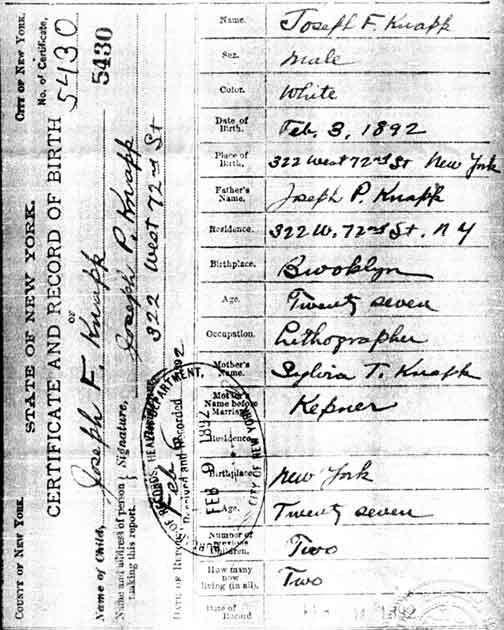 COUNTY OF NEW YORK.
CITY OF NEW YORK.
STATE OF NEW YORK.
No. of Certificate,
5430
5430
CERTIFICATE AND RECORD OF BIRTH
OF
Name of Child, Joseph F. Knapp
Name and address of person making this report. Signature, Joseph P. Knapp
322 West 72nd St
DATE OF REPORT, Feb
received and Recorded
BUREAU OF RECORDS, HEALTH DEPARTMENT,
FEB 9 1892
CITY OF NEW YORK
Name. Joseph F. Knapp
Sex. Male
Color. White
Date of Birth. Feb, 3, 1892
Place of Birth. 322 West 72nd St New York
Father's Name. Joseph P. Knapp
Residence. 322 W. 72nd St. N Y
Birthplace. Brooklyn
Age. Twenty seven
Occupation. Lithographer
Mother's Name. Sylvia T. Knapp
Mother's Name before Marriage. Kepner
Residence.
Birthplace. New York
Age. Twenty seven
Number of Previous Children. Two
How many now living (in all). Two
Date of Record 1892